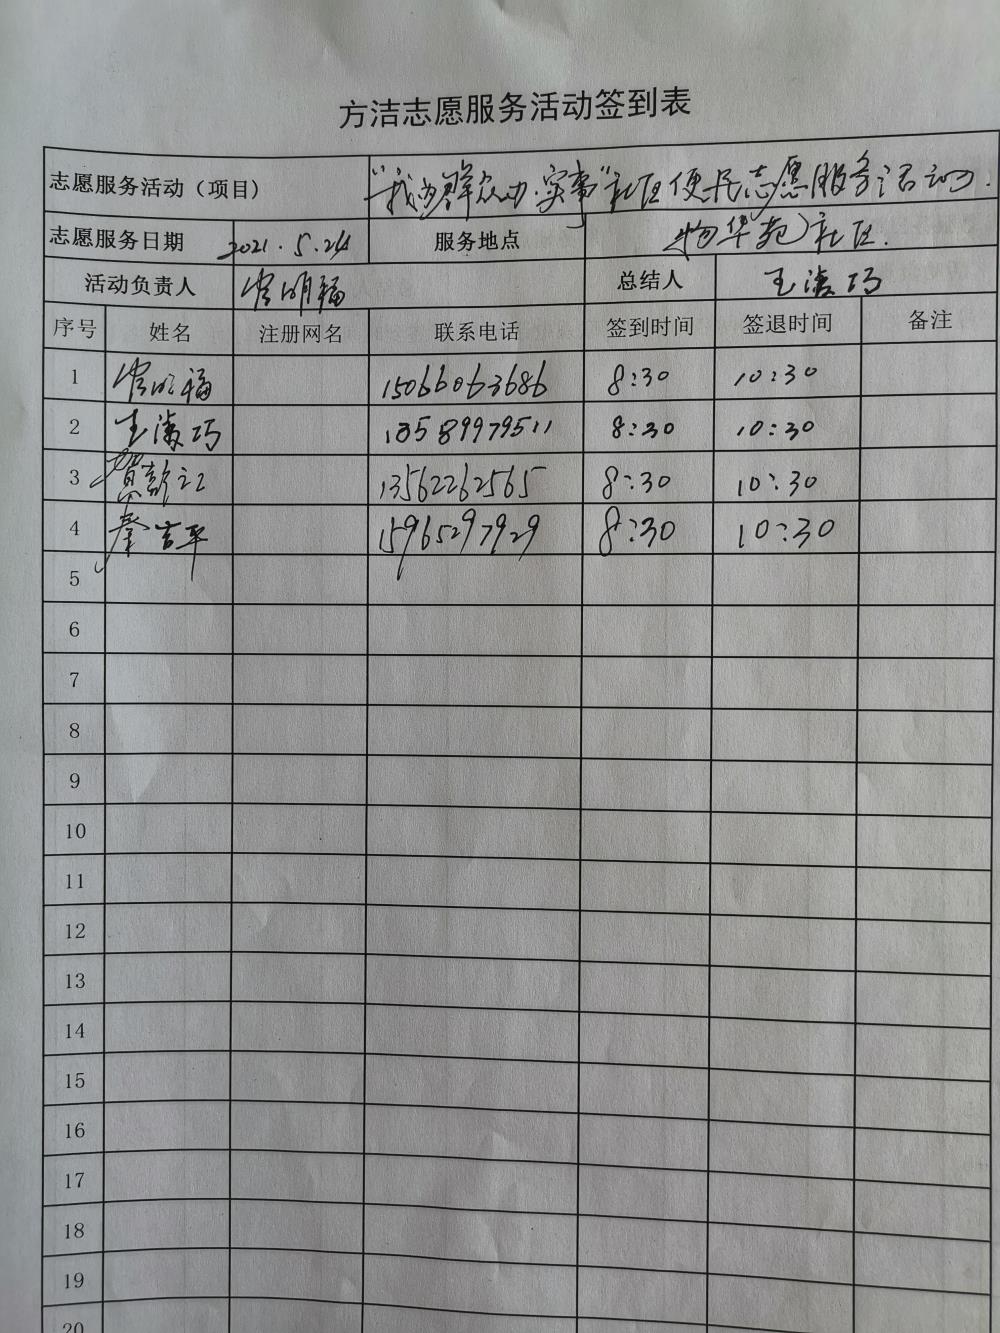 方洁志愿服务活动签到表
志愿服务活动（项目） “我为群众办实事”社区便民志愿服务活动.
志愿服务日期 2021.5.24 服务地点 物华苑社区.
活动负责人 明福 总结人 王 巧
序号 姓名 注册网名 联系电话 签到时间 签退时间 备注
1 明福 15066063686 8:30 10:30
2 王 巧 13589979511 8:30 10:30
3 贺彭江 13562262565 8:30 10:30
4 秦吉平 15965297929 8:30 10:30
5
6
7
8
9
10
11
12
13
14
15
16
17
18
19
20